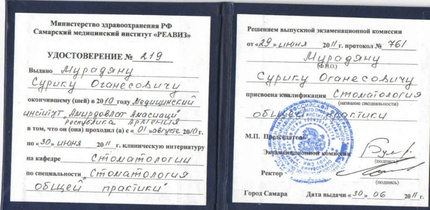 Министерство здравоохранения РФ
Самарский медицинский институт «РЕАВИЗ»
УДОСТОВЕРЕНИЕ № 219
Выдано Мурадяну
Сурику Оганесовичу
окончившему (шей) в 2010 году Медицинский
институт
Республика Армения
в том, что он (она) проходил (а) с «01» августа 2010г.
по «30» июня 2011 г. клиническую интернатуру
на кафедре Стоматологии
по специальности "Стоматология
общей практики"
Решением выпускной экзаменационной комиссии
от «29» июня 2011 г. протокол № 761
Мурадяну
(Ф.И.О.)
Сурику Оганесовичу
присвоена квалификация Стоматология
(название специальности)
общей практики
М.П. Председатель
Экзаменационной комиссии
(подпись)
Ректор
(подпись)
Город Самара Дата выдачи «30» 06 2011 г.